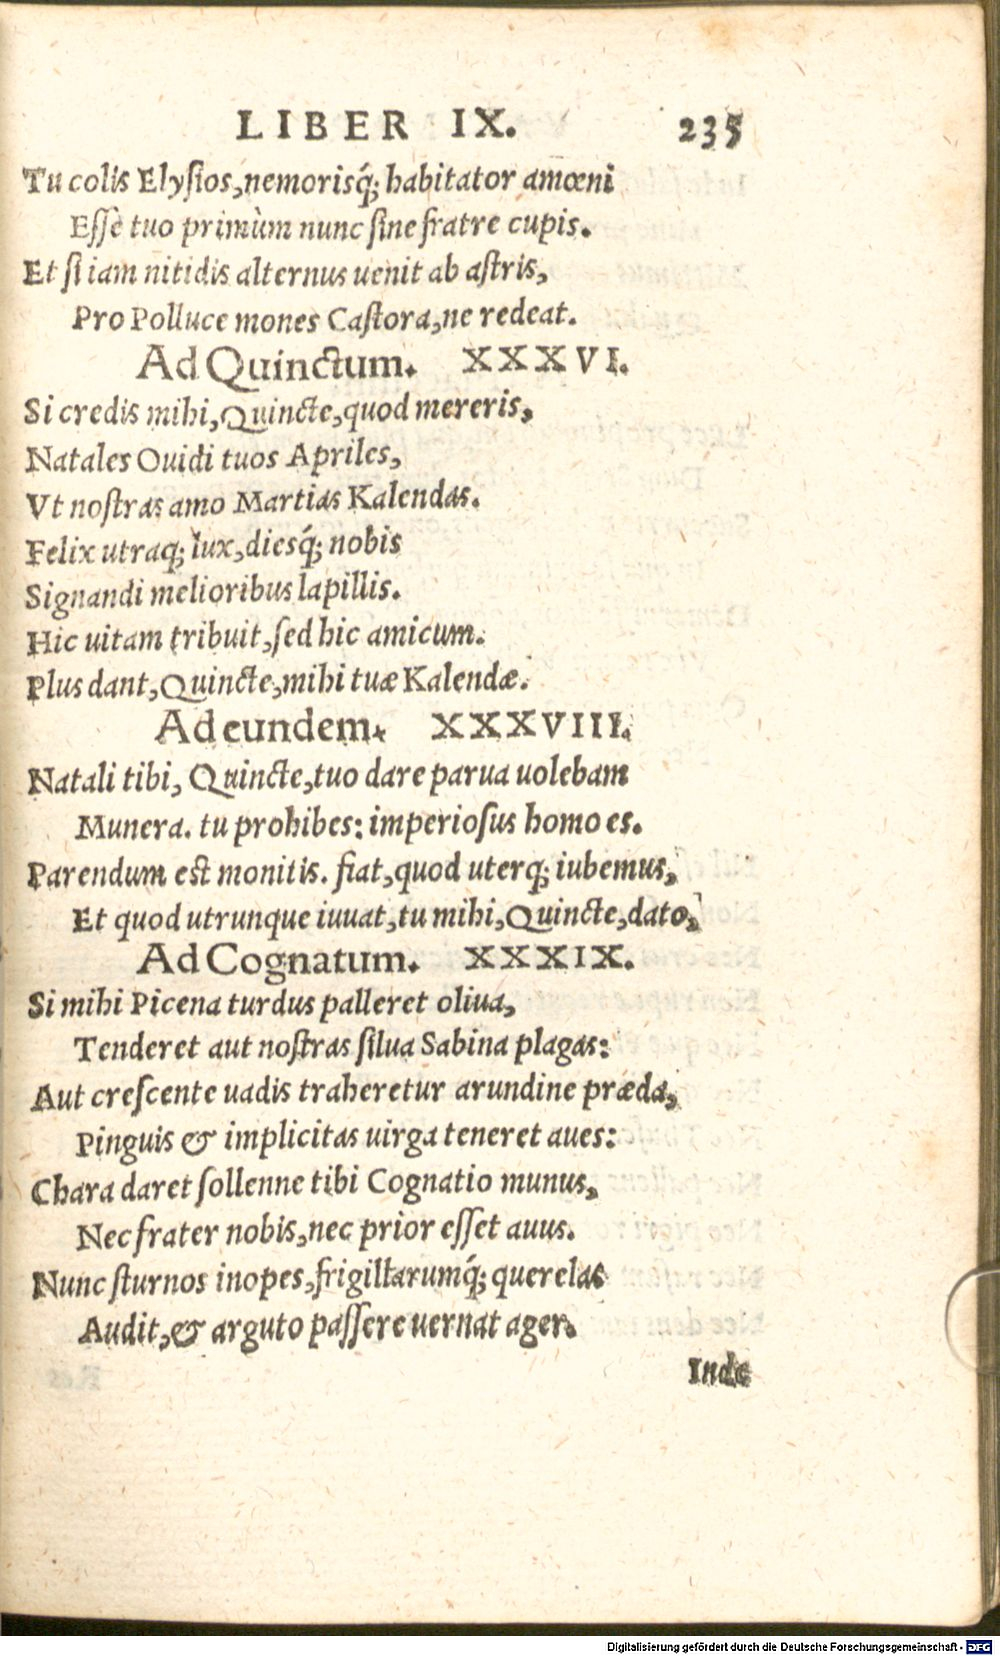 LIBER IX. 235
Tu colis Elyſios, nemorisq́; habitator amœni
Eſſe tuo primùm nunc ſine fratre cupis.
Et ſi iam nitidis alternus uenit ab aſtris,
Pro Polluce mones Caſtora, ne redeat.
Ad Quinctum. XXXVI.
Si credis mihi, Quincte, quod mereris,
Natales Ouidi tuos Apriles,
Vt noſtras amo Martias Kalendas.
Felix utraq; lux, diesq́; nobis
Signandi melioribus lapillis.
Hic uitam tribuit, ſed hic amicum.
Plus dant, Quincte, mihi tuæ Kalendæ.
Ad eundem. XXXVIII.
Natali tibi, Quincte, tuo dare parua uolebam
Munera. tu prohibes: imperioſus homo es.
Parendum est monitis. fiat, quod uterq; iubemus,
Et quod utrunque iuuat, tu mihi, Quincte, dato.
Ad Cognatum. XXXIX.
Si mihi Picena turdus palleret oliua,
Tenderet aut noſtras ſilua Sabina plagas:
Aut creſcente uadis traheretur arundine præda,
Pinguis & implicitas uirga teneret aues:
Chara daret ſollenne tibi Cognatio munus,
Nec frater nobis, nec prior eſſet auus.
Nunc ſturnos inopes, frigillarumq́; querelas
Audit, & arguto paſſere uernat ager.
Inde
Digitalisierung gefördert durch die Deutsche Forschungsgemeinschaft - DFG